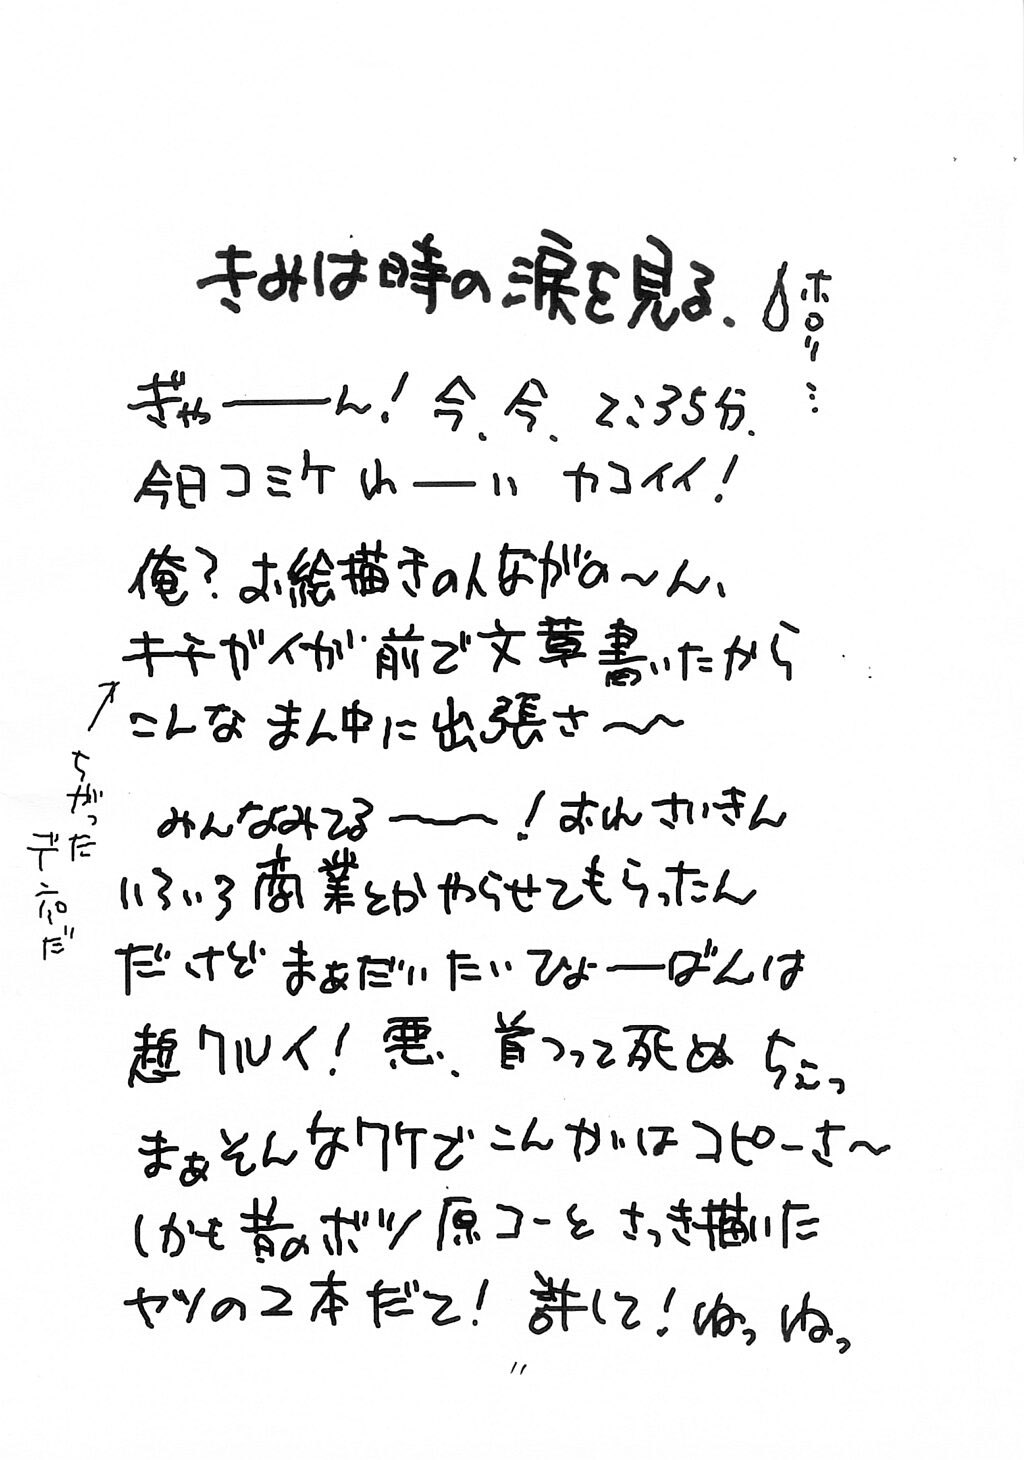 きみは時の涙を見る、
ポロッ…
ぎゃ――ん！今、今、2:35分、
今日コミケ わーい カコイイ！
俺？お絵描きの人ながの～ん、
キチガイが前で文章書いたから
こんなまん中に出張さ～～
ちがった
デムパだ
みんなみてる～～！おれさいきん
いろいろ商業とかやらせてもらったん
ださぞまぁだいたいひょーばんは
超クルイ！悪、首つって死ぬ ちぇっ
まぁそんなワケでこんかいはコピーさ～
しかも昔のボツ原コーとさっき描いた
ヤツの2本だて！許して！ねっねっ
11